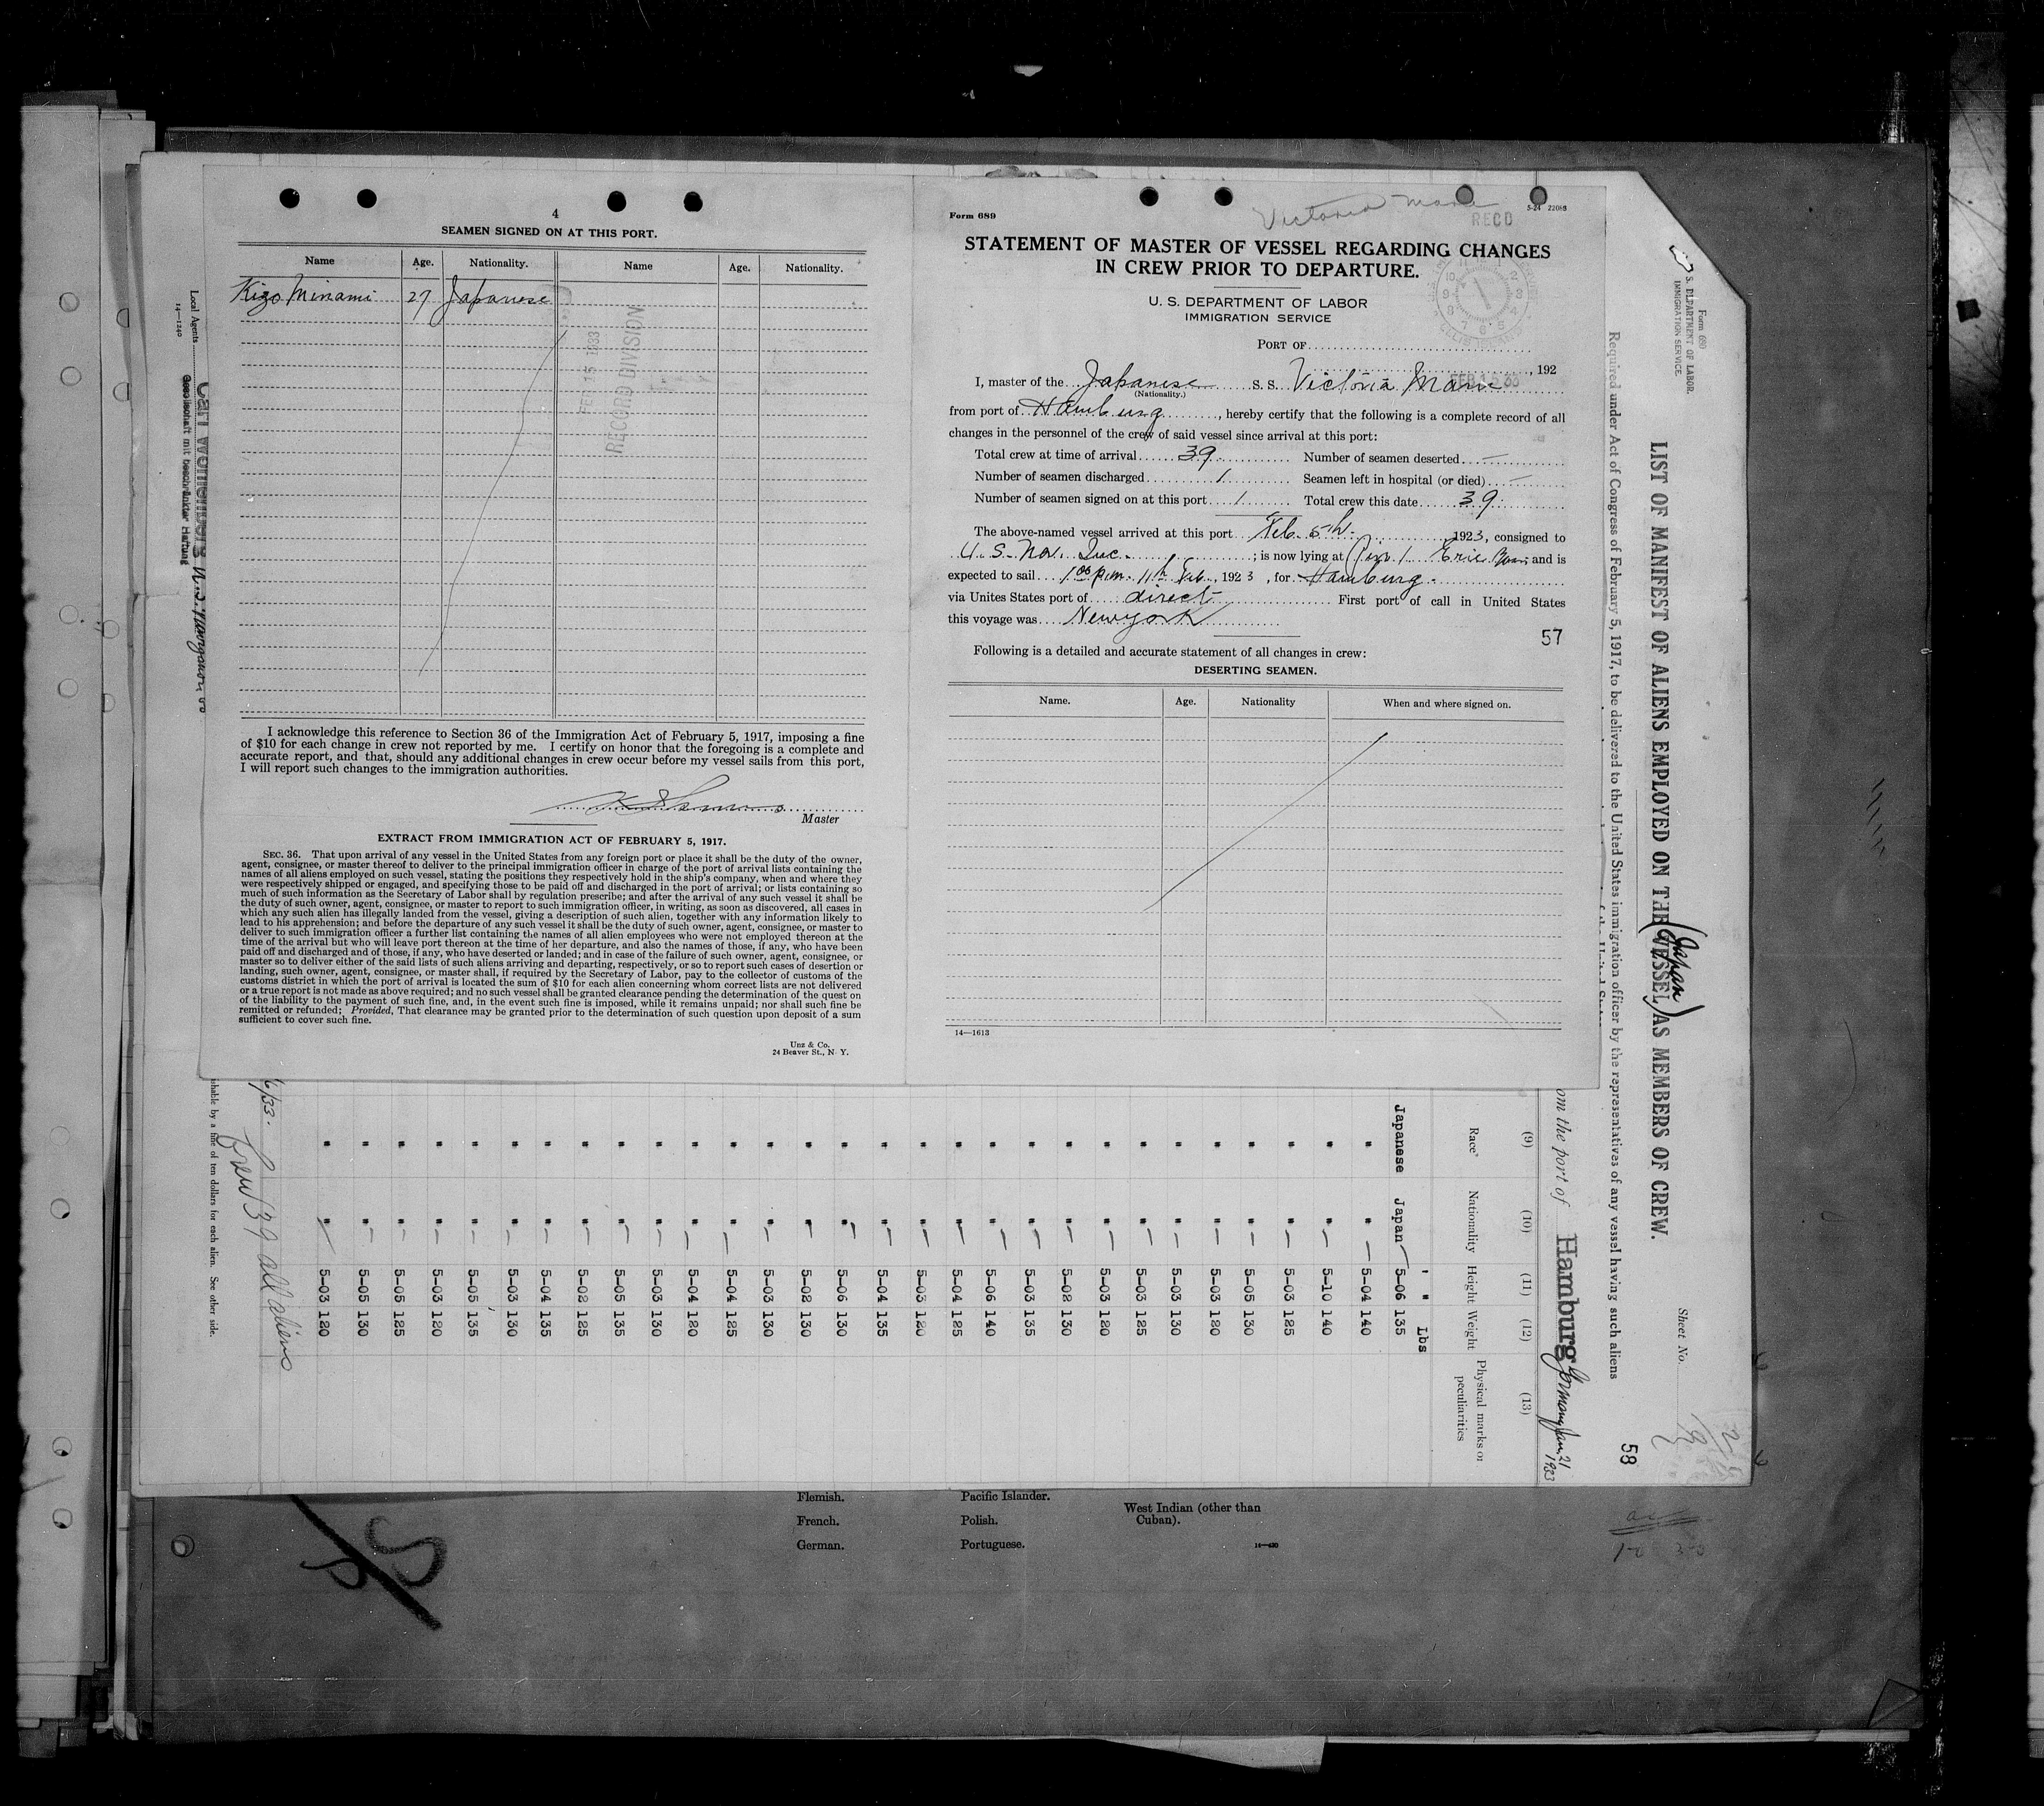 4
SEAMEN SIGNED ON AT THIS PORT.
Name Age. Nationality. Name Age. Nationality.
Kizo Minami 27 Japanese
FEB 15 1933
RECORD DIVISION
I acknowledge this reference to Section 36 of the Immigration Act of February 5, 1917, imposing a fine
of $10 for each change in crew not reported by me. I certify on honor that the foregoing is a complete and
accurate report, and that, should any additional changes in crew occur before my vessel sails from this port,
I will report such changes to the immigration authorities.
Master
EXTRACT FROM IMMIGRATION ACT OF FEBRUARY 5, 1917.
SEC. 36. That upon arrival of any vessel in the United States from any foreign port or place it shall be the duty of the owner,
agent, consignee, or master thereof to deliver to the principal immigration officer in charge of the port of arrival lists containing the
names of all aliens employed on such vessel, stating the positions they respectively hold in the ship's company, when and where they
were respectively shipped or engaged, and specifying those to be paid off and discharged in the port of arrival; or lists containing so
much of such information as the Secretary of Labor shall by regulation prescribe; and after the arrival of any such vessel it shall be
the duty of such owner, agent, consignee, or master to report to such immigration officer, in writing, as soon as discovered, all cases in
which any such alien has illegally landed from the vessel, giving a description of such alien, together with any information likely to
lead to his apprehension; and before the departure of any such vessel it shall be the duty of such owner, agent, consignee, or master to
deliver to such immigration officer a further list containing the names of all alien employees who were not employed thereon at the
time of the arrival but who will leave port thereon at the time of her departure, and also the names of those, if any, who have been
paid off and discharged and of those, if any, who have deserted or landed; and in case of the failure of such owner, agent, consignee, or
master so to deliver either of the said lists of such aliens arriving and departing, respectively, or so to report such cases of desertion or
landing, such owner, agent, consignee, or master shall, if required by the Secretary of Labor, pay to the collector of customs of the
customs district in which the port of arrival is located the sum of $10 for each alien concerning whom correct lists are not delivered
or a true report is not made as above required; and no such vessel shall be granted clearance pending the determination of the quest on
of the liability to the payment of such fine, and, in the event such fine is imposed, while it remains unpaid; nor shall such fine be
remitted or refunded; Provided, That clearance may be granted prior to the determination of such question upon deposit of a sum
sufficient to cover such fine.
Unz & Co.
24 Beaver St., N. Y.
Form 689
Victoria Maru
RECD
5-24 22088
STATEMENT OF MASTER OF VESSEL REGARDING CHANGES
IN CREW PRIOR TO DEPARTURE.
U. S. DEPARTMENT OF LABOR
IMMIGRATION SERVICE
PORT OF
, 192
I, master of the Japanese S. S. Victoria Maru
(Nationality.)
from port of Hamburg, hereby certify that the following is a complete record of all
changes in the personnel of the crew of said vessel since arrival at this port:
Total crew at time of arrival 39 Number of seamen deserted —
Number of seamen discharged 1 Seamen left in hospital (or died) —
Number of seamen signed on at this port 1 Total crew this date 39
The above-named vessel arrived at this port Feb. 5th, 1923, consigned to
U. S. Nav. Inc. ; is now lying at Pier 1 Erie Basin and is
expected to sail 1 00 p.m. 11th Feb., 1923, for Hamburg.
via Unites States port of direct First port of call in United States
this voyage was Newyork
57
Following is a detailed and accurate statement of all changes in crew:
DESERTING SEAMEN.
Name. Age. Nationality When and where signed on.
14—1613
Form 680
U. S. DEPARTMENT OF LABOR.
IMMIGRATION SERVICE.
Sheet No.
LIST OF MANIFEST OF ALIENS EMPLOYED ON THE VESSEL AS MEMBERS OF CREW.
(Japan)
Required under Act of Congress of February 5, 1917, to be delivered to the United States immigration officer by the representatives of any vessel having such aliens
58
om the port of Hamburg Germany Jan. 21 1933
(9) (10) (11) (12) (13)
Race Nationality Height Weight Physical marks or peculiarities
' " Lbs
Japanese Japan 5-06 135
" " 5-04 140
" " 5-10 140
" " 5-03 125
" " 5-05 130
" " 5-03 120
" " 5-03 130
" " 5-03 125
" " 5-03 120
" " 5-02 130
" " 5-03 135
" " 5-06 140
" " 5-04 125
" " 5-03 120
" " 5-04 135
" " 5-06 130
" " 5-02 130
" " 5-03 130
" " 5-04 125
" " 5-04 120
" " 5-03 130
" " 5-05 135
" " 5-02 125
" " 5-04 135
" " 5-03 130
" " 5-05 135
" " 5-03 120
" " 5-05 125
" " 5-05 130
" " 5-03 120
6/33. Crew 39 all aliens
ishable by a fine of ten dollars for each alien. See other side.
Local Agents
14—1240
Gesellschaft mit beschränkter Haftung
Flemish. Pacific Islander. West Indian (other than
French. Polish. Cuban).
German. Portuguese.